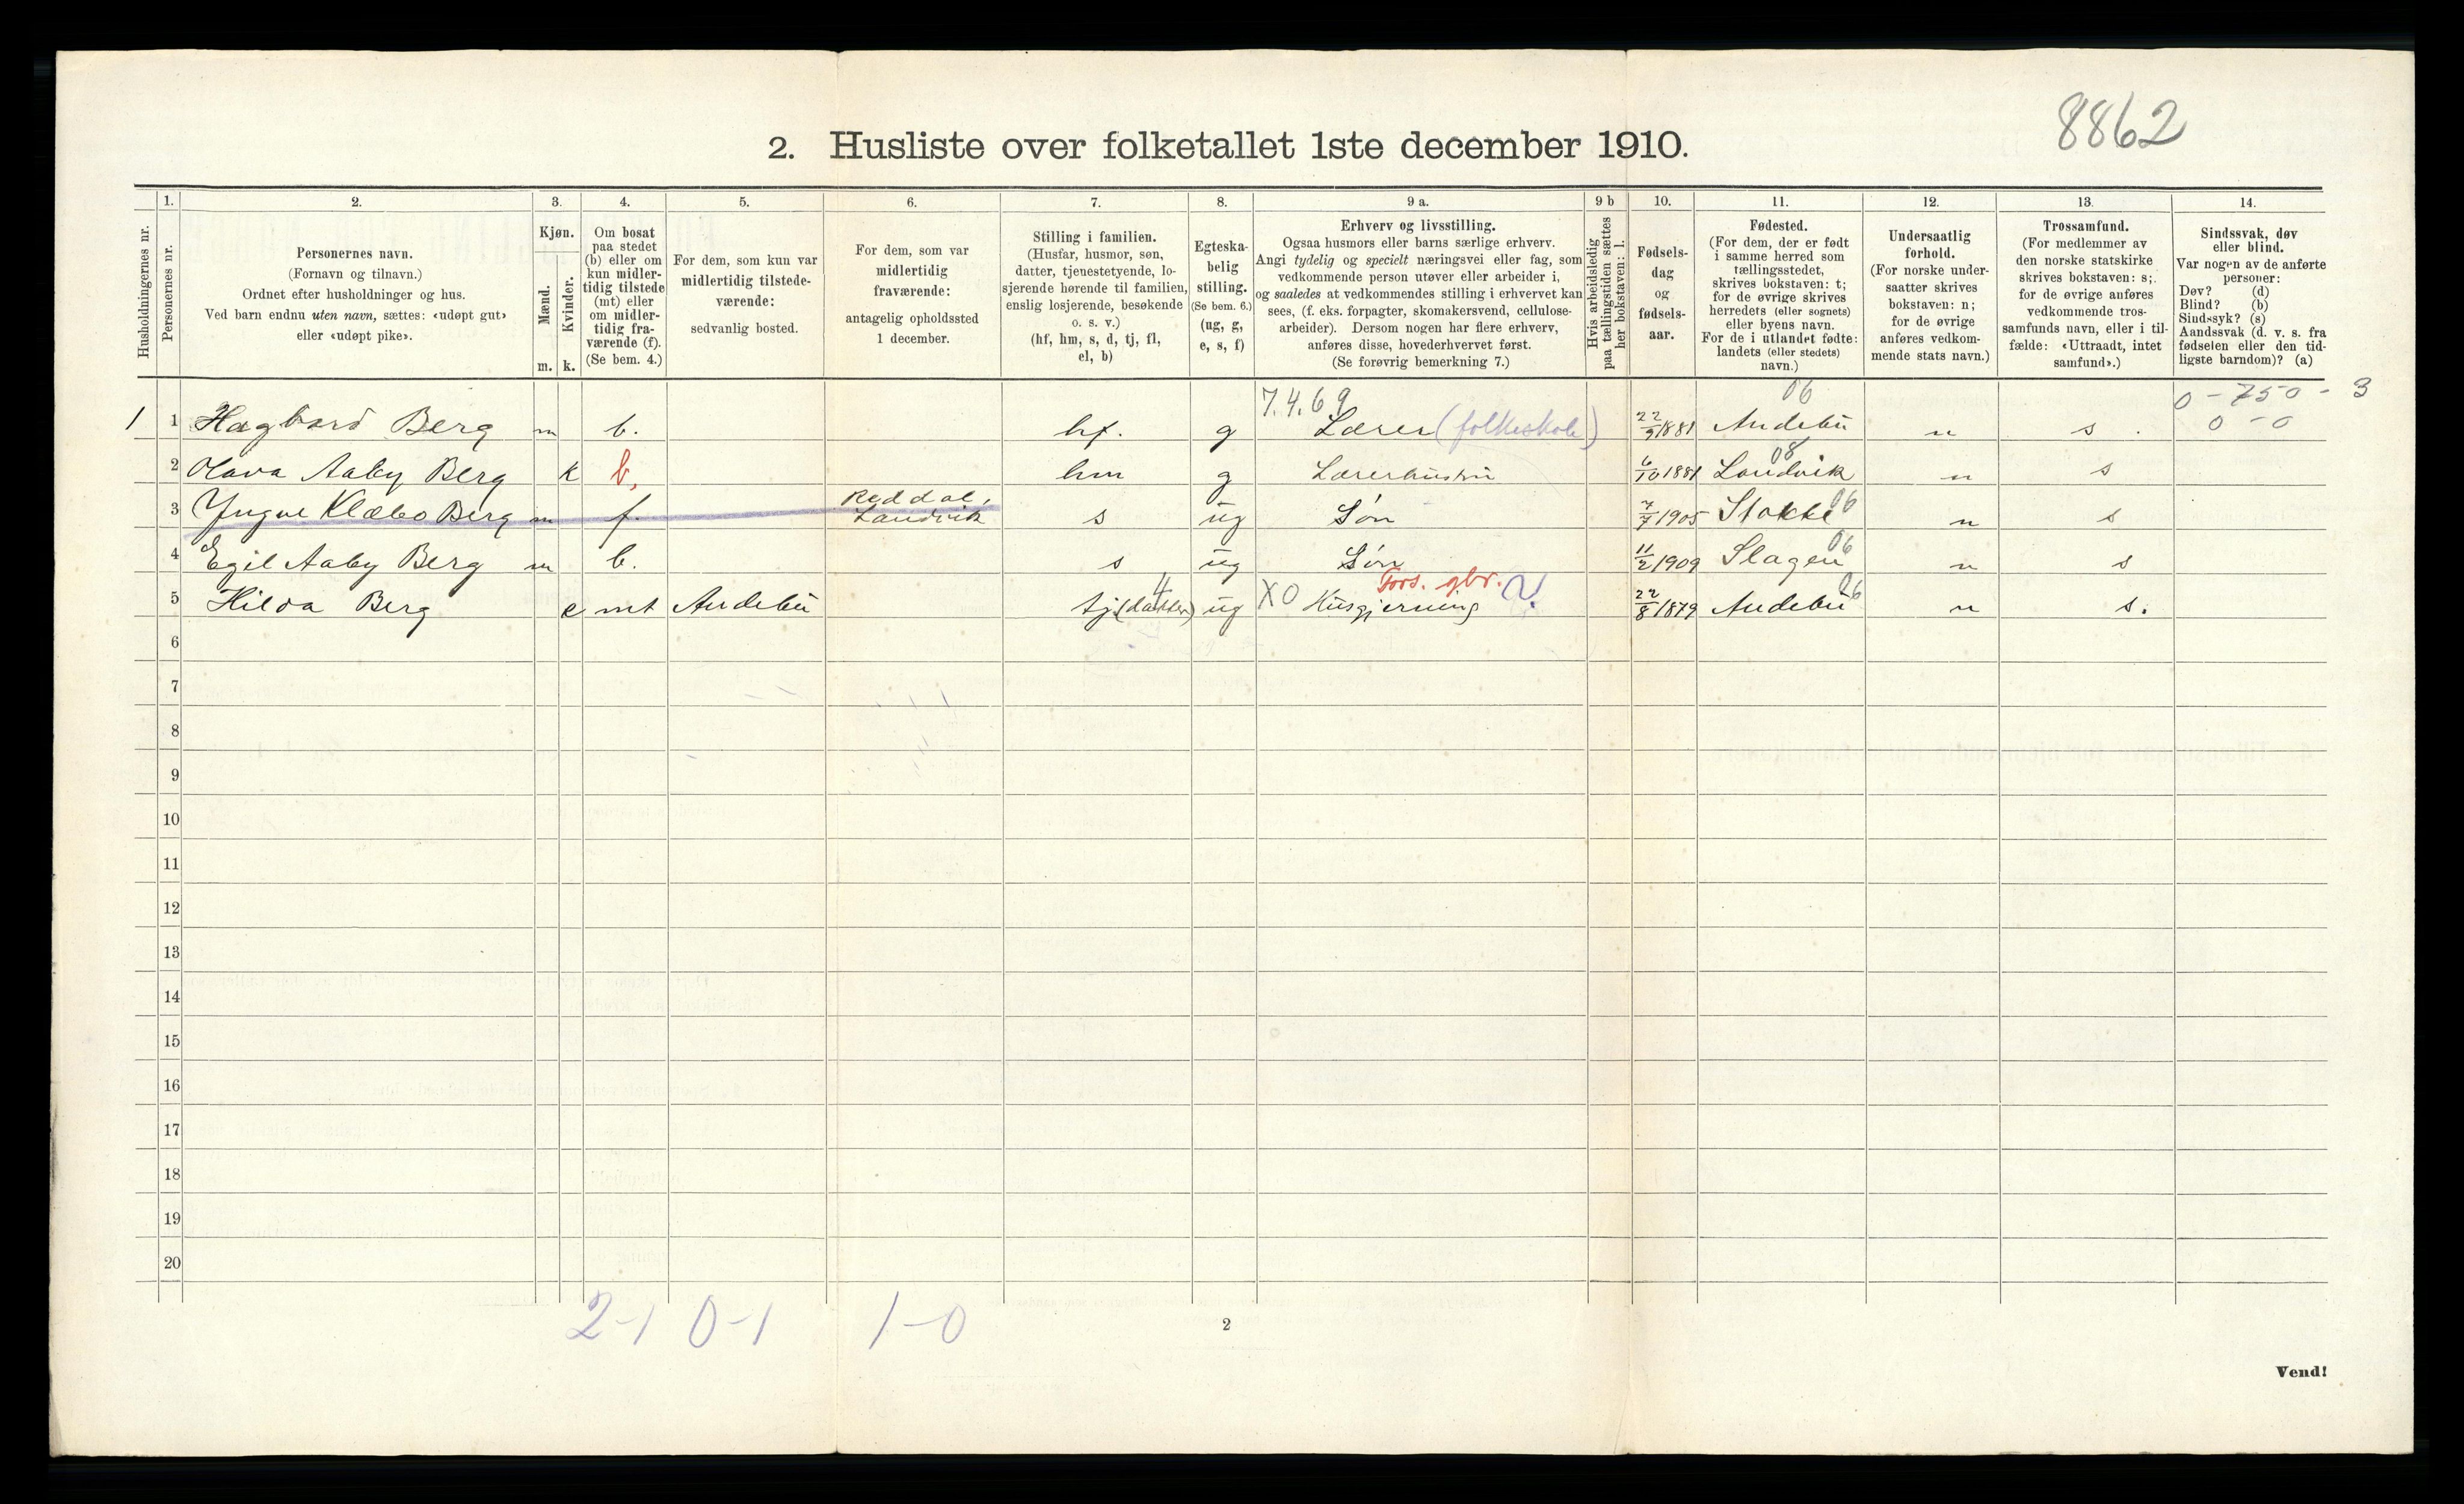 8862
2. Husliste over folketallet 1ste december 1910.
Husholdningernes nr.
1.
Personernes nr.
2.
Personernes navn.
(Fornavn og tilnavn.)
Ordnet efter husholdninger og hus.
Ved barn endnu uten navn, sættes: «udøpt gut»
eller «udøpt pike».
3.
Kjøn.
Mænd.
Kvinder.
m.
k.
4.
Om bosat
paa stedet
(b) eller om
kun midler-
tidig tilstede
(mt) eller
om midler-
tidig fra-
værende (f).
(Se bem. 4.)
5.
For dem, som kun var
midlertidig tilstede-
værende:
sedvanlig bosted.
6.
For dem, som var
midlertidig
fraværende:
antagelig opholdssted
1 december.
7.
Stilling i familien.
(Husfar, husmor, søn,
datter, tjenestetyende, lo-
sjerende hørende til familien,
enslig losjerende, besøkende
o. s. v.)
(hf, hm, s, d, tj, fl,
el, b)
8.
Egteska-
belig
stilling.
(Se bem. 6.)
(ug, g,
e, s, f)
9 a.
Erhverv og livsstilling.
Ogsaa husmors eller barns særlige erhverv.
Angi tydelig og specielt næringsvei eller fag, som
vedkommende person utøver eller arbeider i,
og saaledes at vedkommendes stilling i erhvervet kan
sees, (f. eks. forpagter, skomakersvend, cellulose-
arbeider). Dersom nogen har flere erhverv,
anføres disse, hovederhvervet først.
(Se forøvrig bemerkning 7.)
9 b
Hvis arbeidsledig
paa tællingstiden sættes
her bokstaven: l.
10.
Fødsels-
dag
og
fødsels-
aar.
11.
Fødested.
(For dem, der er født
i samme herred som
tællingsstedet,
skrives bokstaven: t;
for de øvrige skrives
herredets (eller sognets)
eller byens navn.
For de i utlandet fødte:
landets (eller stedets)
navn.)
12.
Undersaatlig
forhold.
(For norske under-
saatter skrives
bokstaven: n;
for de øvrige
anføres vedkom-
mende stats navn.)
13.
Trossamfund.
(For medlemmer av
den norske statskirke
skrives bokstaven: s;
for de øvrige anføres
vedkommende tros-
samfunds navn, eller i til-
fælde: «Uttraadt, intet
samfund».)
14.
Sindssvak, døv
eller blind.
Var nogen av de anførte
personer:
Døv? (d)
Blind? (b)
Sindssyk? (s)
Aandssvak (d. v. s. fra
fødselen eller den tid-
ligste barndom)? (a)
7.4.69 06 0-750-3
1 1 Hagbard Berg m b. hf. g Lærer (folkeskole) 22/9 1881 Andebu n s. 0-0
08
2 Olava Aaby Berg k b. hm g Lærerhustru 6/10 1881 Landvik n s
Reddal,
3 Yngve Klæbo Berg m f. Landvik s ug Søn 7/7 1905 Stokke 06 n s
4 Egil Aaby Berg m b. s ug Søn 11/2 1909 Slagen 06 n s
4 Fors. gbr.
5 Hilda Berg k mt Andebu tj (datter) ug XO Husgjerning 22/8 1879 Andebu 06 n s.
6
7
8
9
10
11
12
13
14
15
16
17
18
19
20
2-1 0-1 1-0
2
Vend!